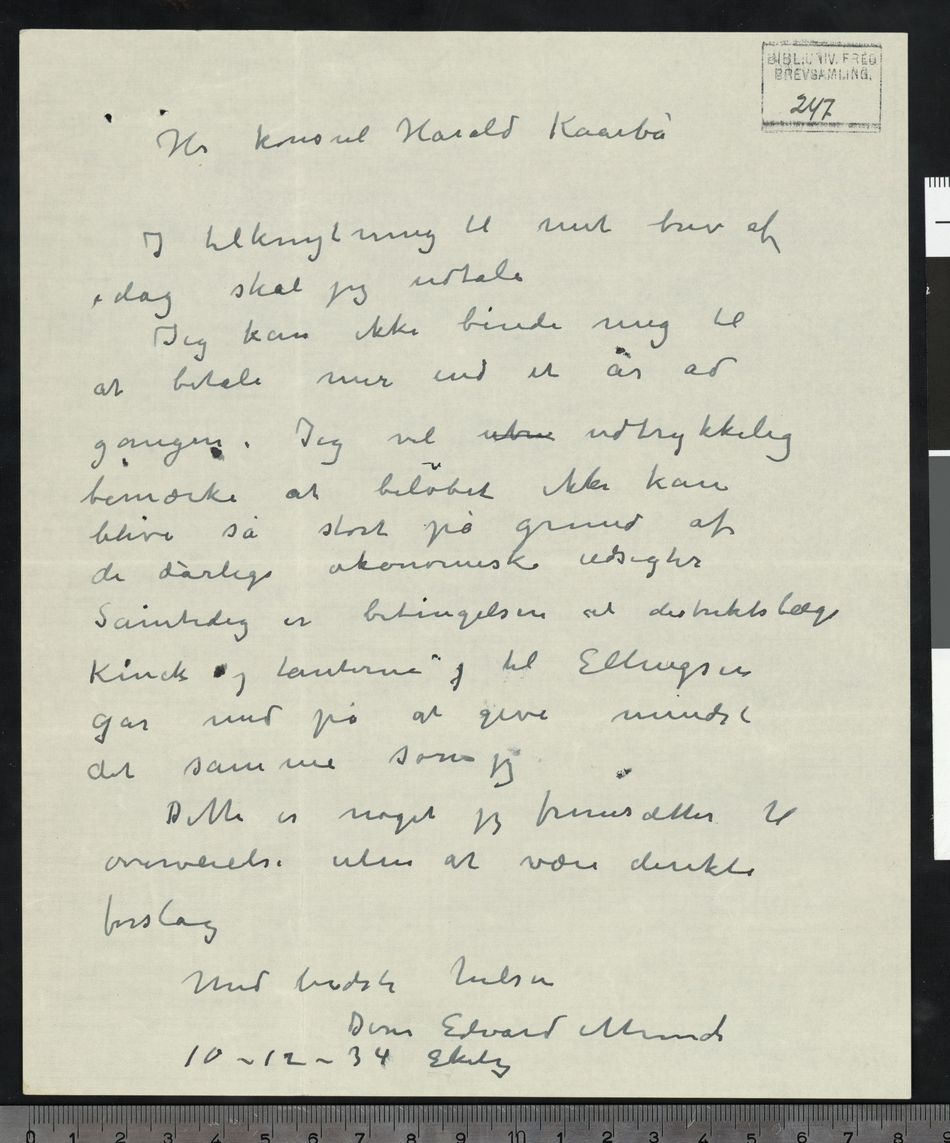 BIBL. UNIV. FRED
BREVSAMLING.
247
Hr konsul Harald Kaarbø
I tilknytning til mit brev af
idag skal jeg udtale
Jeg kan ikke binde mig til
at betale mer end et år ad
gangen. Jeg vil udtrykkelig
bemærke at beløbet ikke kan
blive så stort på grund af
de dårlige økonomiske udsigter
Samtidig er betingelsen at distriktslæge
Kinck og tanterne til Ellingsen
går med på at give mindst
det samme som jeg
Dette er noget jeg fremsætter til
overveielse uten at være direkte
forslag
Med bedste hilsen
Deres Edvard Munch
10-12-34 Ekely
0 1 2 3 4 5 6 7 8 9 10 1 2 3 4 5 6 7 8